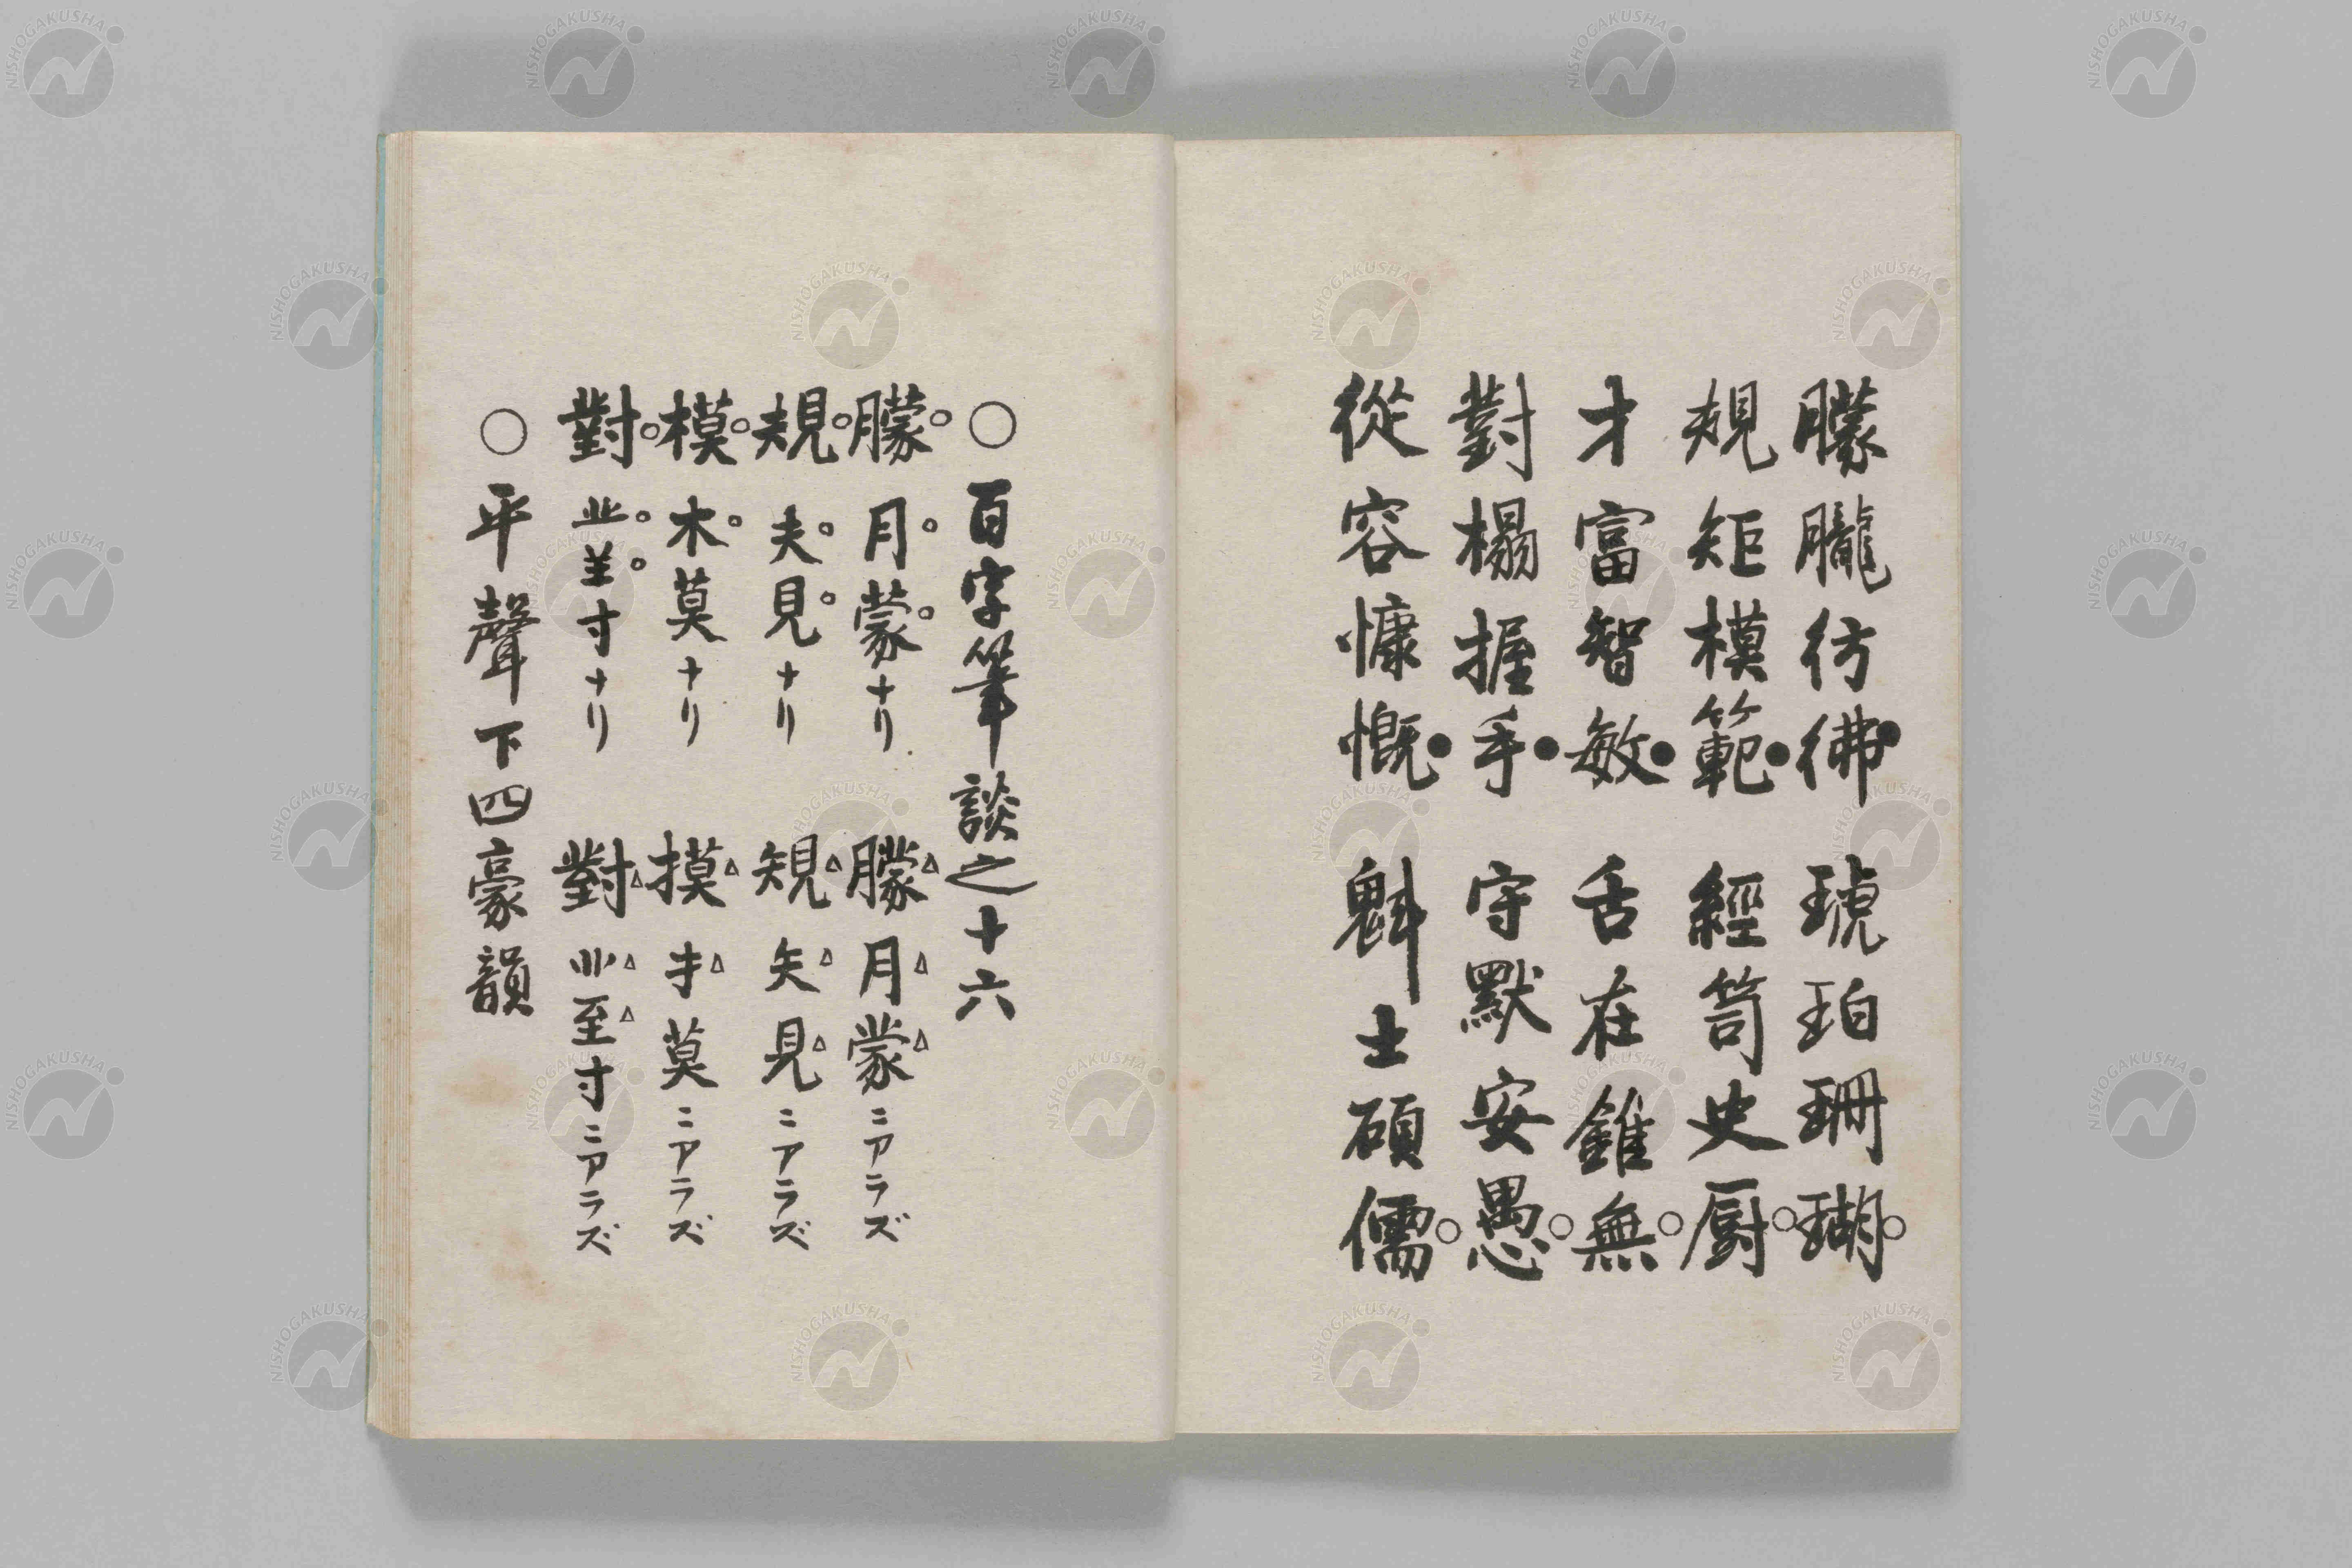 朦朧彷彿● 琥珀珊瑚○
規矩模範● 經笥史厨○
才富智敏● 舌在錐無○
對榻握手● 守默安愚○
從容慷慨● 魁士碩儒○
○百字筆談之十六
朦 月蒙ナリ 朦 月蒙ニアラズ
規 夫見ナリ 䂓 矢見ニアラズ
模 木莫ナリ 摸 扌莫ニアラズ
對 丵寸ナリ 對 业至寸ニアラズ
○平聲下四豪韻
NISHOGAKUSHA